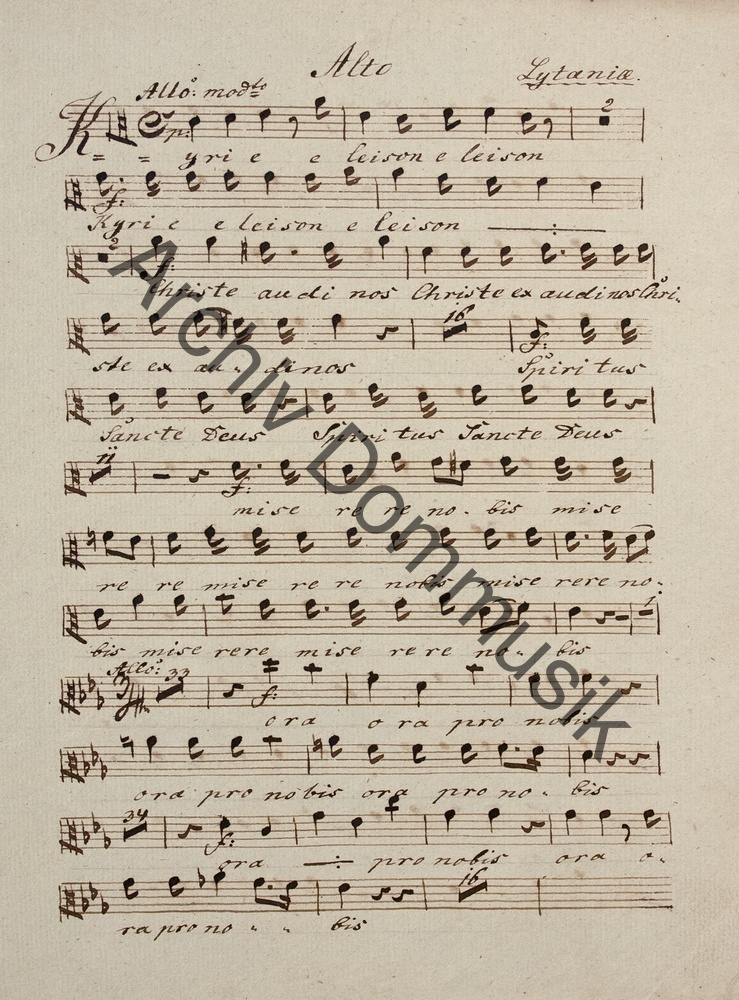 Alto
Lytaniæ.
Allo: modto
p:
2
Ky = = yri e e leison e leison
f:
Kyri e e leison e leison —÷—
2
f:
Christe audi nos Christe ex audi nos Chri-
16
f:
ste ex au - dinos Spiritus
Sancte Deus Spiritus Sancte Deus
11
f:
mise re re no- bis mise
re re mise re re nobis mise rere no-
1
bis mise rere mise re re no - bis
Allo: 33
3/4
f:
ora o ra pro nobis
ora pro nobis ora pro no - bis
34
f:
ora —÷— pro nobis ora o-
16
ra pro no - - bis
Archiv Dommusik